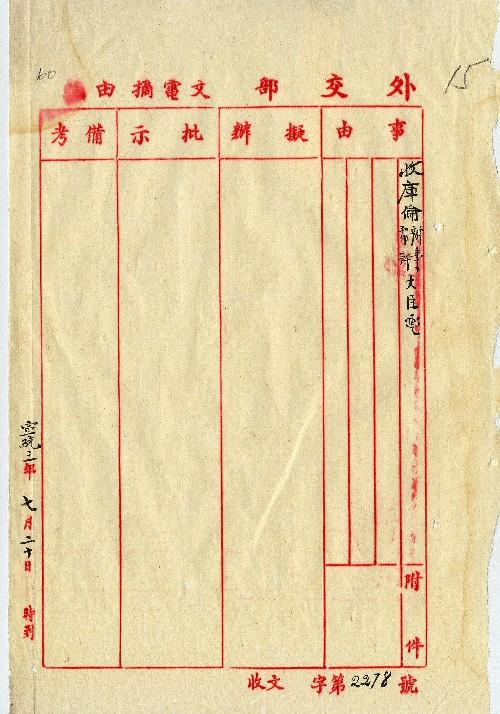 60
15
外交部文電摘由
事由
擬辦
批示
備考
收庫倫辦事大臣電
附件
宣統三年七月二十日 時到
收文 字第2278號